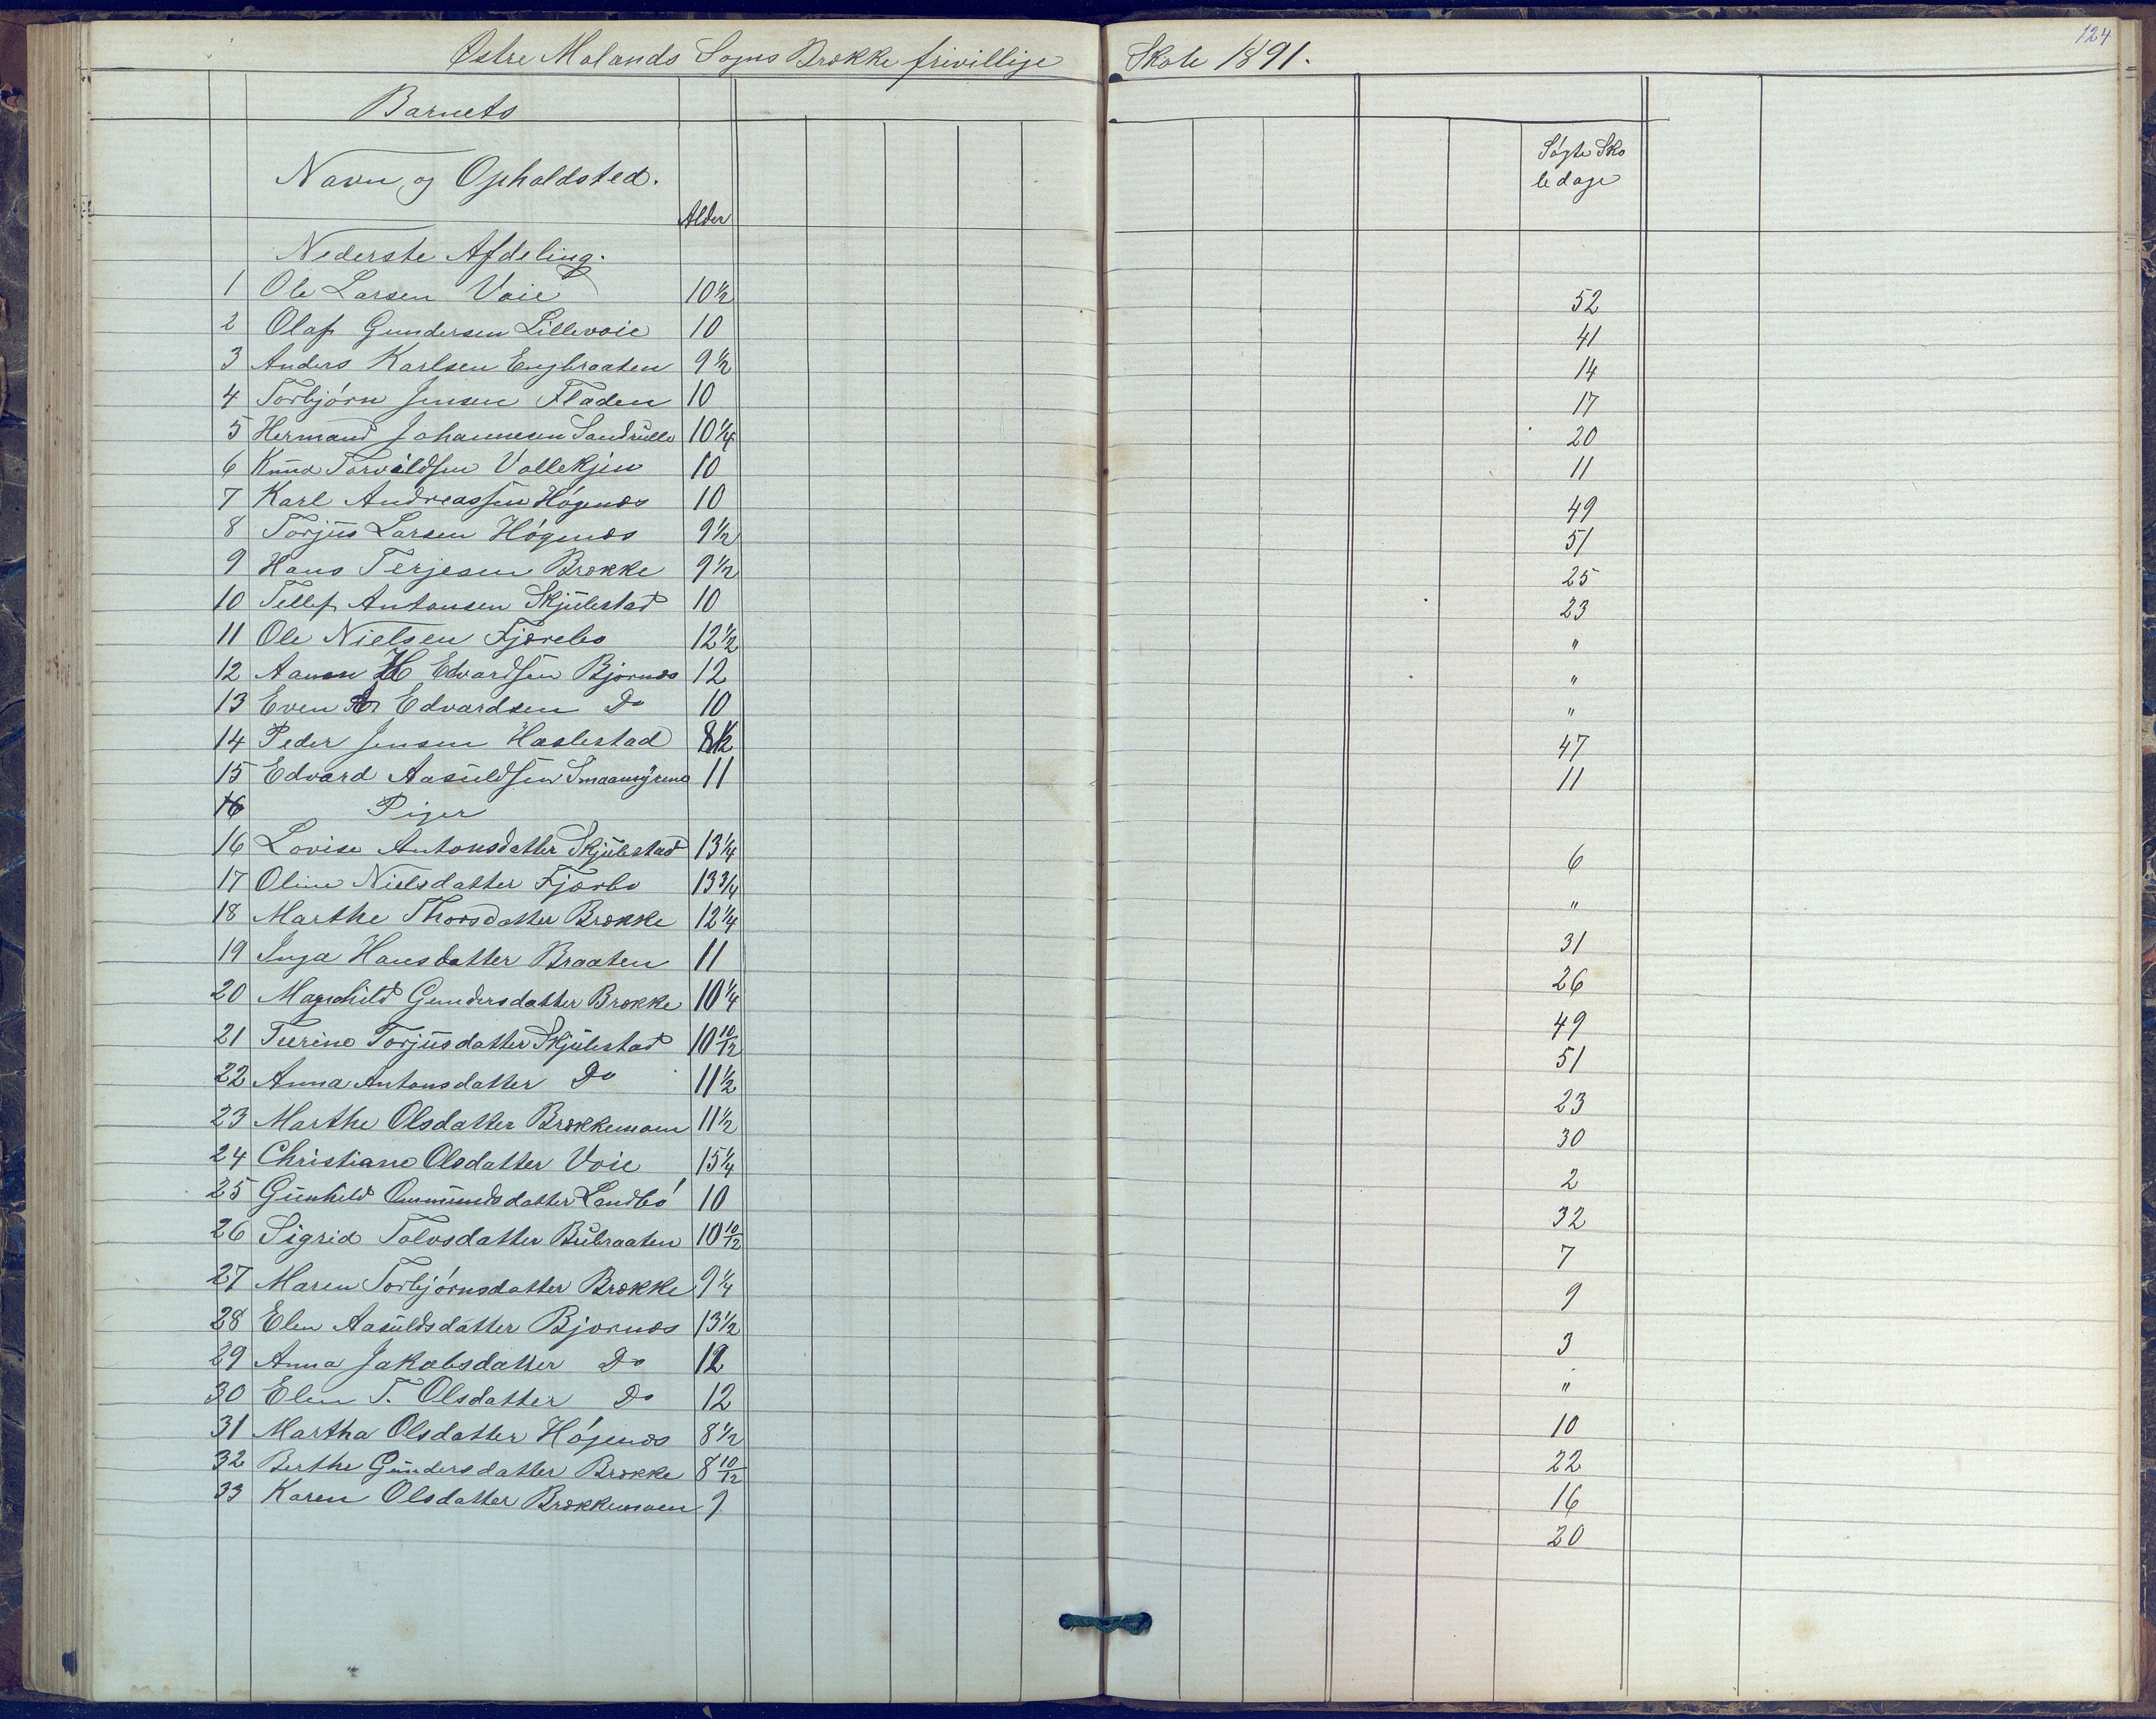 124
Østre Molands Sogns Brække frivillige Skole 1891.
Barnets
Navn og Opholdsted. Alder Søgte Sko
le dage
Nederste Afdeling.
1 Ole Larsen Voie 10½ 52
2 Olaf Gundersen Lillevoie 10 41
3 Anders Karlsen Engbraaten 9½ 14
4 Torbjørn Jensen Fladen 10 17
5 Hermand Johannesen Sandrulle 10¼ 20
6 Knud Torvildsen Vallekjen 10 11
7 Karl Andreassen Høgenæs 10 49
8 Torjus Larsen Høgenæs 9½ 51
9 Hans Terjesen Brække 9½ 25
10 Tellef Antonsen Skjulestad 10 23
11 Ole Nielsen Fjærebo 12½ "
12 Aanen H Edvardsen Bjornæs 12 "
13 Even A Edvardsen Do 10 "
14 Peder Jensen Haslestad 8½ 47
15 Edvard Aasuldsen Smaamyrene 11 11
16 Piger
16 Lovise Antonsdatter Skjulestad 13¼ 6
17 Oline Nielsdatter Fjærbo 13¾ "
18 Marthe Thorsdatter Brække 12¼ 31
19 Inga Hansdatter Braaten 11 26
20 Magnhild Gundersdatter Brække 10¼ 49
21 Terine Torjusdatter Skjulestad 10 10/12 51
22 Anna Antonsdatter Do 11½ 23
23 Marthe Olsdatter Brækkemoen 11½ 30
24 Christiane Olsdatter Voie 15¼ 2
25 Gunhild Omundsdatter Landbø 10 32
26 Sigrid Tolvsdatter Bubraaten 10 10/12 7
27 Maren Torbjørnsdatter Brække 9¼ 9
28 Elen Aasuldsdatter Bjornæs 13½ 3
29 Anna Jakobsdatter Do 12 "
30 Elen T. Olsdatter Do 12 10
31 Martha Olsdatter Høgenæs 8½ 22
32 Berthe Gundersdatter Brække 8 10/12 16
33 Karen Olsdatter Brækkemoen 9 20